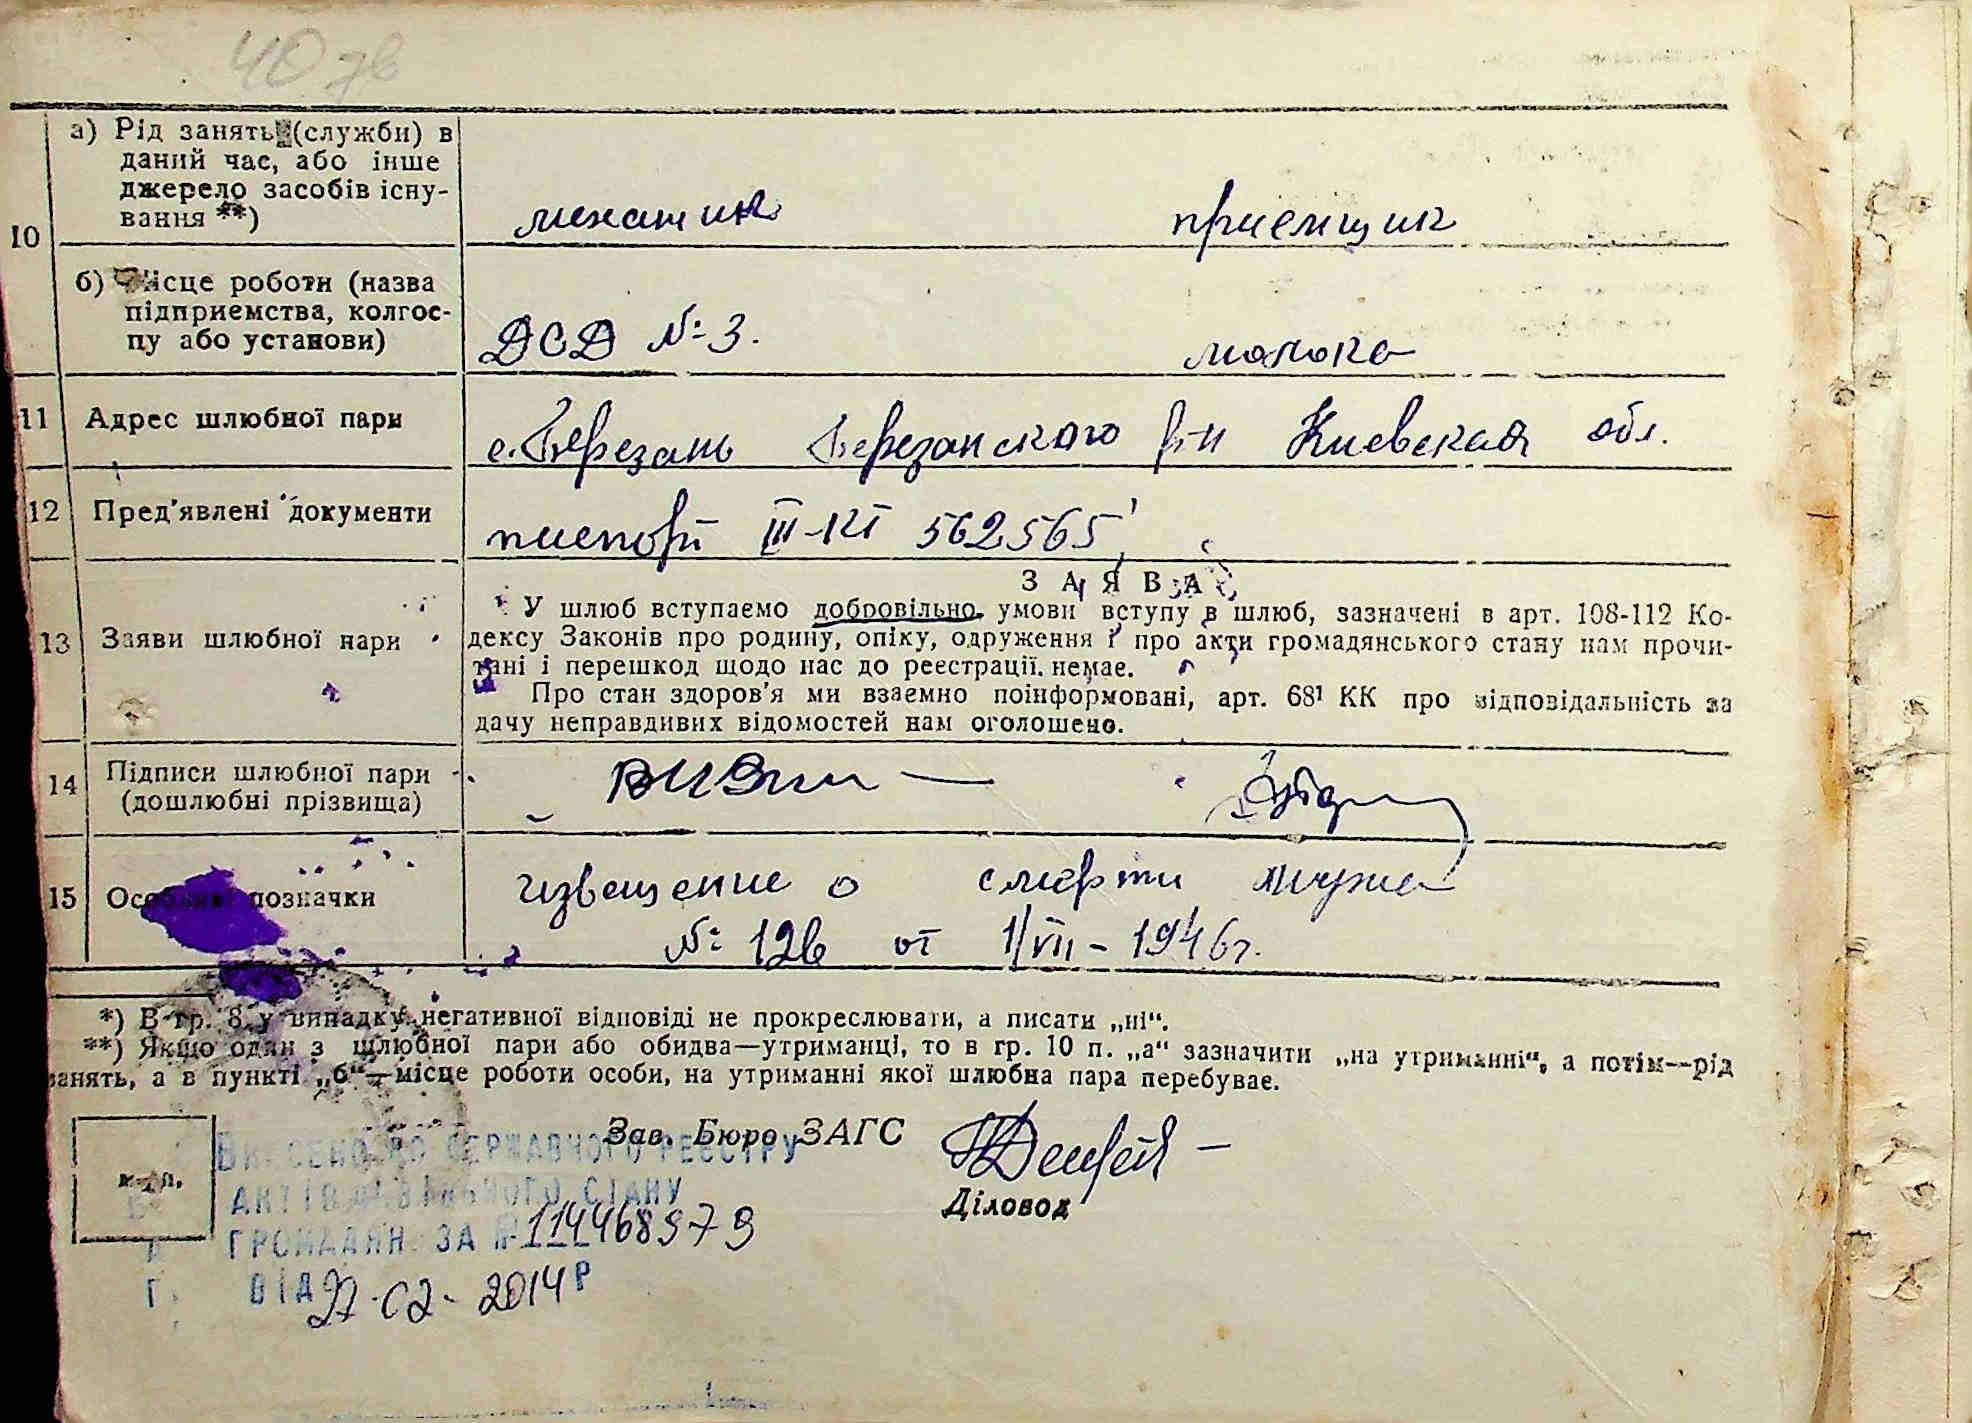 40 зв
10
а) Рід занять (служби) в
даний час, або інше
джерело засобів існу-
вання **)
механик приемщик
б) Місце роботи (назва
підприємства, колгос-
пу або установи)
ДСД №3. молока
11 Адрес шлюбної пари
с. Березань Березанского р-н Киевская обл.
12 Пред'явлені документи
паспорт III-КІ 562565
13 Заяви шлюбної пари
ЗАЯВА
У шлюб вступаємо добровільно, умови вступу в шлюб, зазначені в арт. 108-112 Ко-
дексу Законів про родину, опіку, одруження і про акти громадянського стану нам прочи-
тані і перешкод щодо нас до реєстрації немає.
Про стан здоров'я ми взаємно поінформовані, арт. 68¹ КК про відповідальність за
дачу неправдивих відомостей нам оголошено.
14 Підписи шлюбної пари
(дошлюбні прізвища)
15 Особливі позначки
извещение о смерти мужа
№ 126 от 1/VII - 1946г.
*) В гр. 8 у випадку негативної відповіді не прокреслювати, а писати „ні“.
**) Якщо один з шлюбної пари або обидва—утриманці, то в гр. 10 п. „а“ зазначити „на утриманні“, а потім—рід
занять, а в пункті „б“—місце роботи особи, на утриманні якої шлюбна пара перебуває.
Зав. Бюро ЗАГС
м. п.
Діловод
ВНЕСЕНО ДО ДЕРЖАВНОГО РЕЄСТРУ
АКТІВ ЦИВІЛЬНОГО СТАНУ
ГРОМАДЯН ЗА № 114468979
ВІД 27-02-2014 Р